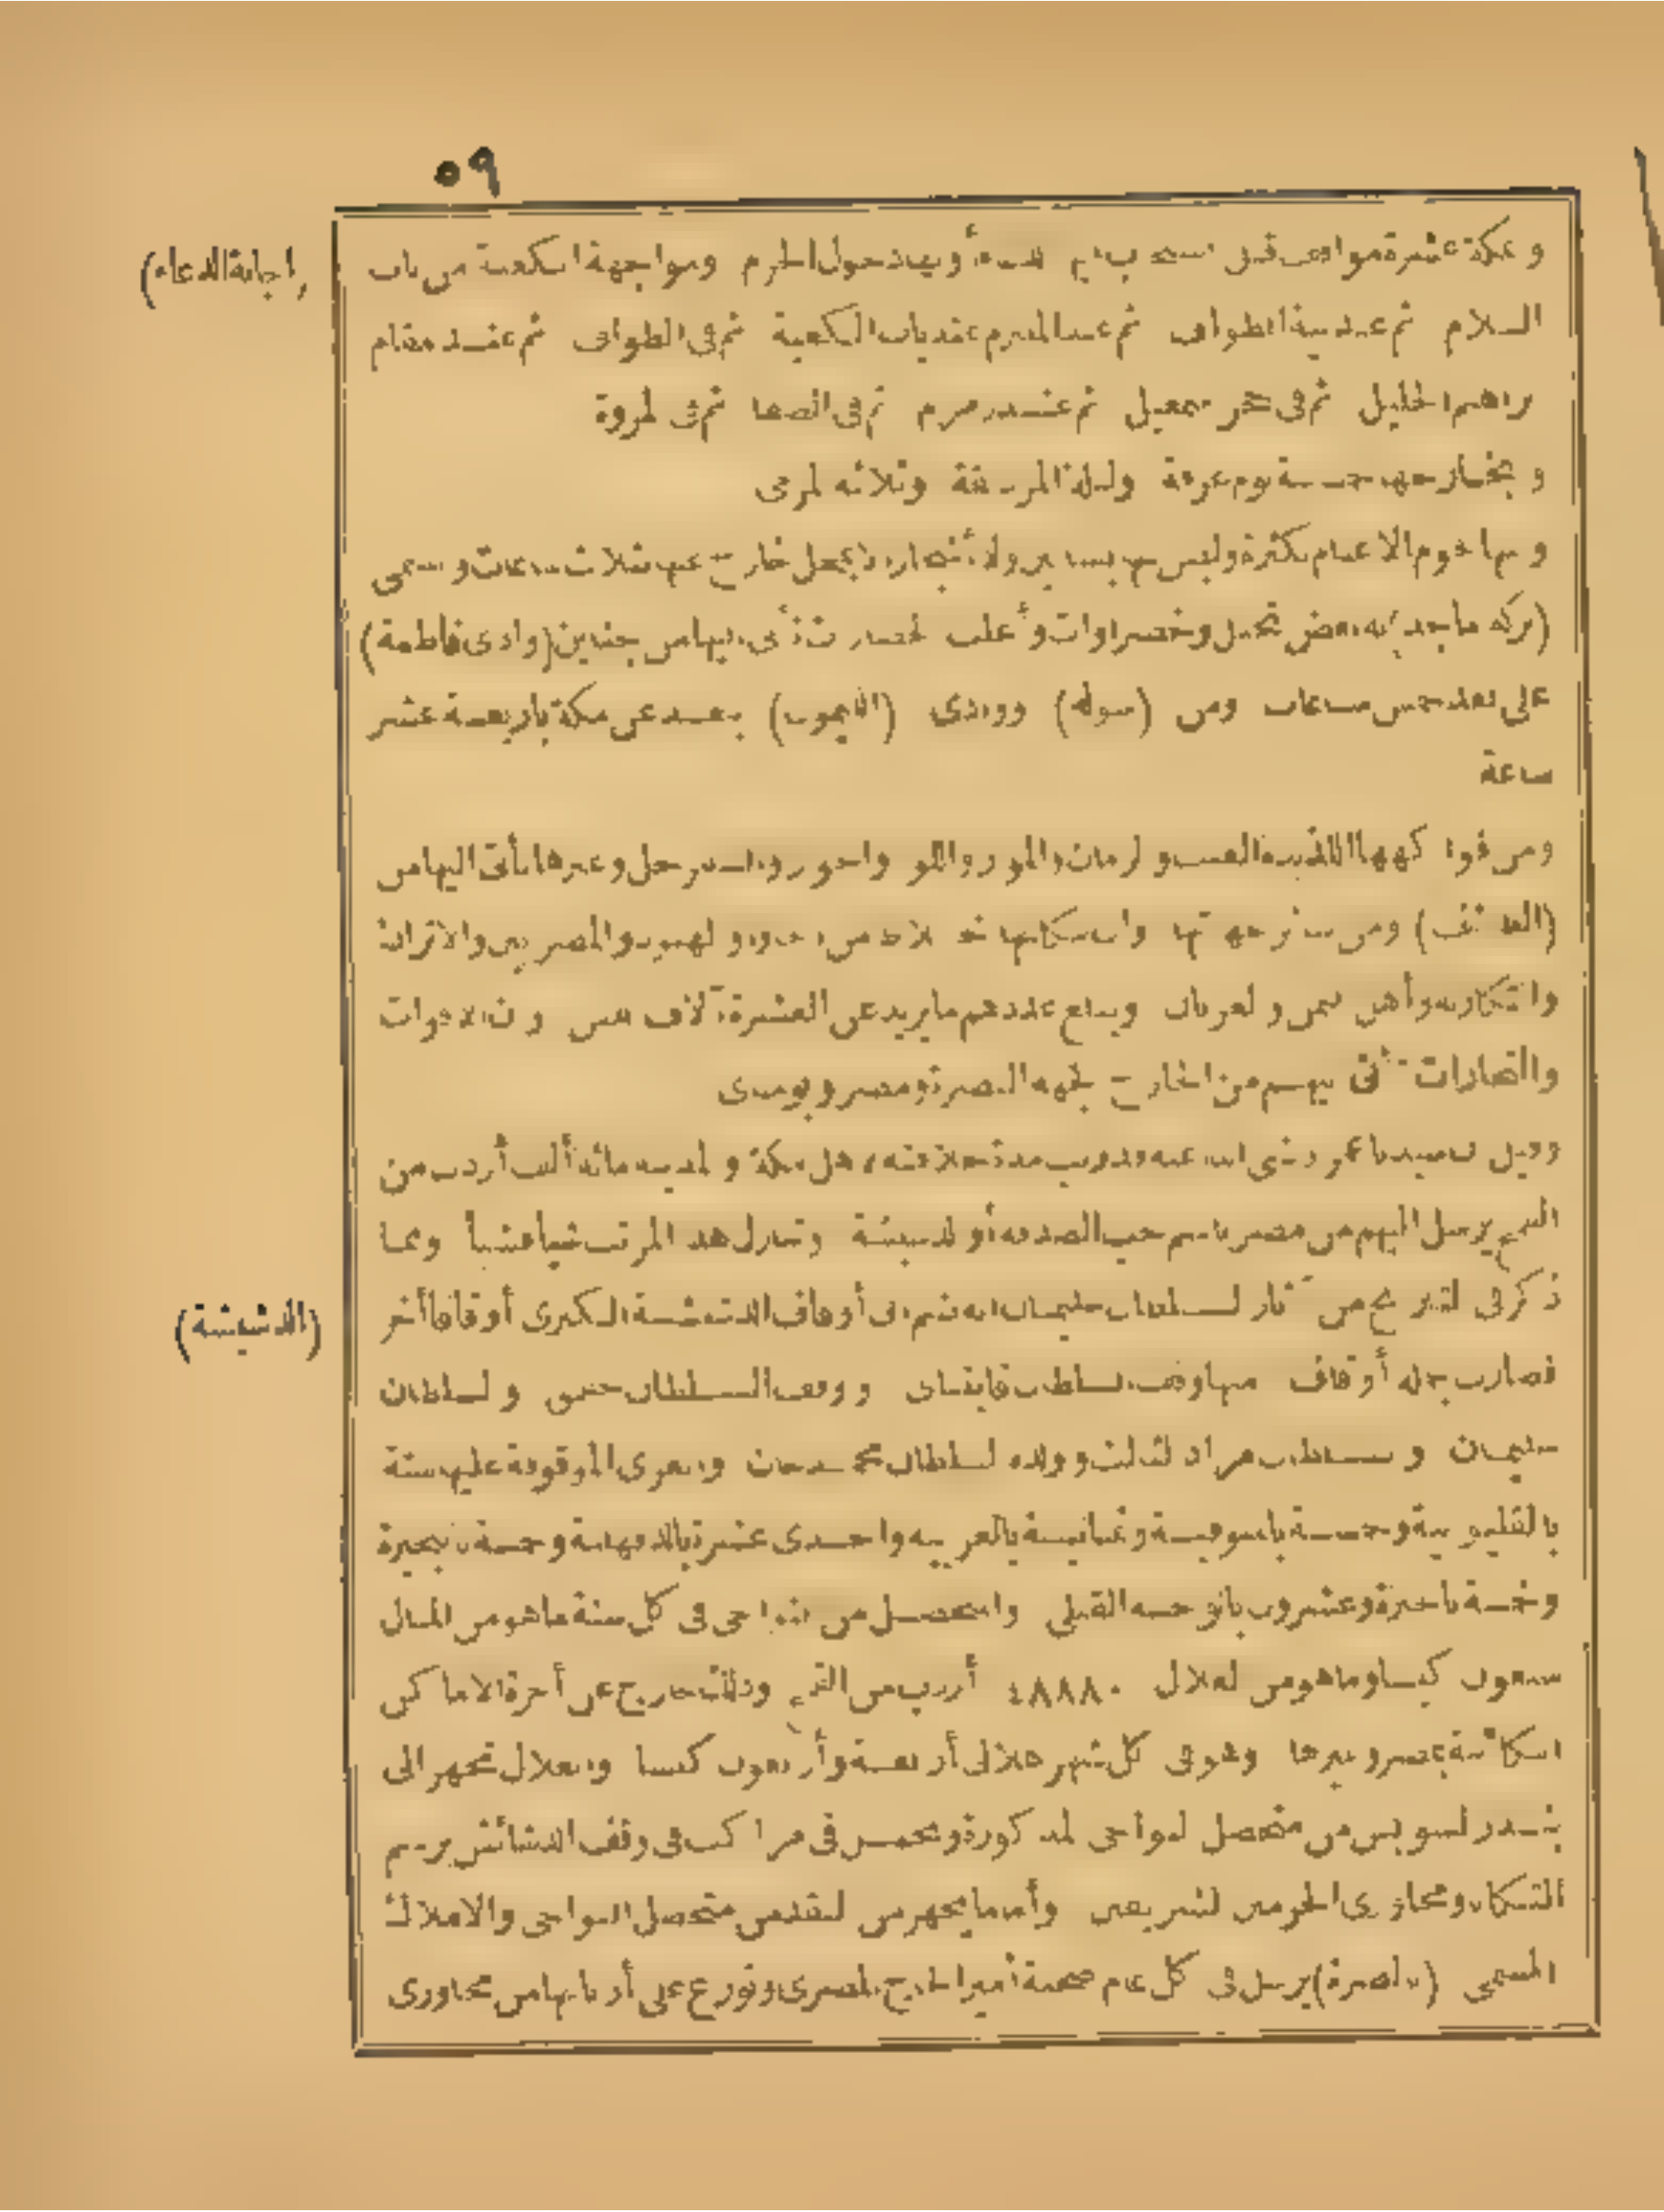 ٥٩
(اجابة الدعاء)
وبمكة عشرة مواقف قيل يستجاب فيها الدعاء أولها دخول الحرم ومواجهة الكعبة من باب
السلام ثم عند بنية الطواف ثم عند الملتزم عند باب الكعبة ثم فى الطواف ثم عند مقام
ابراهيم الخليل ثم فى حجر اسمعيل ثم عند زمزم ثم فى الصفا ثم فى المروة
وبخارجها خمسة يوم عرفة وليلة المزدلفة وثلاثة المرمى
وبها لحوم الاغنام بكثرة وليس بها بساتين ولا أشجار الا بمحل خارج عنها بثلاث ساعات ويسمى
(بركة ماجد) به بعض نخيل وخضراوات وأغلب الخضارات تأتى اليها من جهتين (وادى فاطمة)
على بعد خمس ساعات ومن (سولة) ووادى (الليمون) يبعد عن مكة باربعة عشر
ساعة
ومن فواكهها اللذيذة العنب والرمان والموز واللوز والخوخ والسفرجل وغيرها تأتى اليها من
(الطائف) ومن سائر جهاتها وان سكانها أخلاط من الهنود والمصريين والاتراك
والتكارنة وأهل اليمن والعربان ويبلغ عددهم ما يزيد عن العشرة آلاف نفس وان الاقوات
والتجارات تأتى اليهم من الخارج بجهة البصرة ومصر وبومباى
وقيل ان سيدنا عمر رضى الله عنه قد رتب مدة خلافته لاهل مكة والمدينة مائة ألف أردب من
القمح يرسل اليهم من مصر باسم حب الصدقة أو الدشيشة وتنازل هذا المرتب شيأ فشيأ ومما
(الدشيشة)
ذكر فى التواريخ من آثار السلطان سليمان انه ضم الى أوقاف الدشيشة الكبرى أوقافا أخر
فصارت جملة أوقاف منها وقف السلطان قايتباى ووقف السلطان جقمق والسلطان
سليمان والسلطان مراد الثالث وولده السلطان محمد خان والقرى الموقوفة عليها ستة
بالقليوبية وخمسة بالمنوفية وثمانية بالغربية واحدى عشرة بالدقهلية وخمسة بالبحيرة
وخمسة بالجيزة وعشرون بالوجه القبلى والمتحصل من النواحى فى كل سنة ما هو من المال
سبعون كيسا وما هو من الغلال ٤٨٨٨٠ أردب من القمح وذلك خارج عن أجرة الاماكن
الكائنة بمصر وغيرها وهو فى كل شهر هلالى أربعة وأربعون كيسا والغلال تجهز الى
بندر السويس من متحصل النواحى المذكورة وتحمل فى مراكب فى وقف الدشائش برسم
التكايا ومجاورى الحرمين الشريفين وأما ما يجهز من النقد من متحصل النواحى والاملاك
المسمى (بالصرة) يرسل فى كل عام صحبة أمير الحاج المصرى وتوزع على أربابها من مجاورى